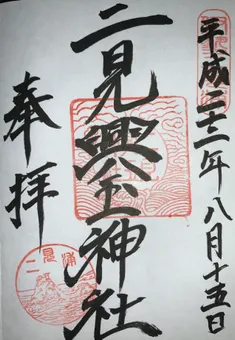 平成二十三年八月十五日
二見興玉神社
奉拝
二見浦